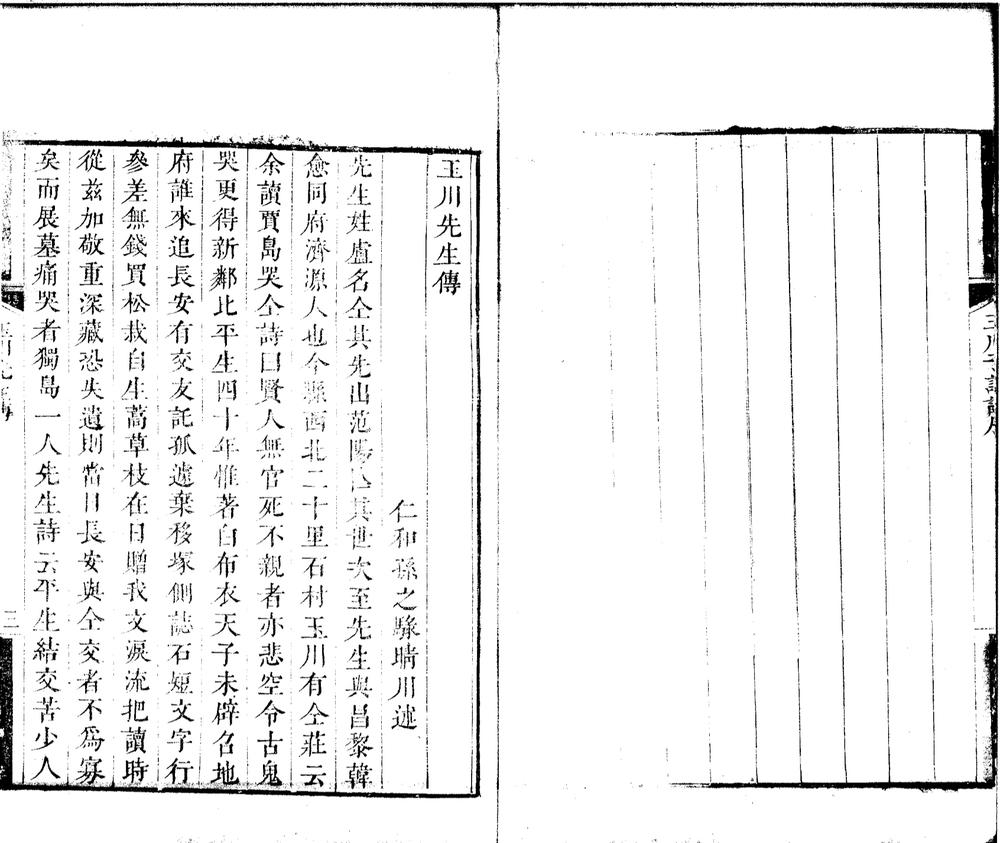 玉川先生傳
仁和孫之騄晴川述
先生姓盧名仝其先出范陽亡其世次至先生與昌黎韓
愈同府濟源人也今縣西北二十里石村玉川有仝莊云
余讀賈島哭仝詩曰賢人無官死不親者亦悲空令古鬼
哭更得新鄰比平生四十年惟著白布衣天子未辟召地
府誰來追長安有交友託孤遽棄移塚側誌石短文字行
參差無錢買松栽自生蒿草枝在日贈我文淚流把讀時
從茲加敬重深藏恐失遺則當日長安與仝交者不爲寡
矣而展墓痛哭者獨島一人先生詩云平生結交苦少人
三